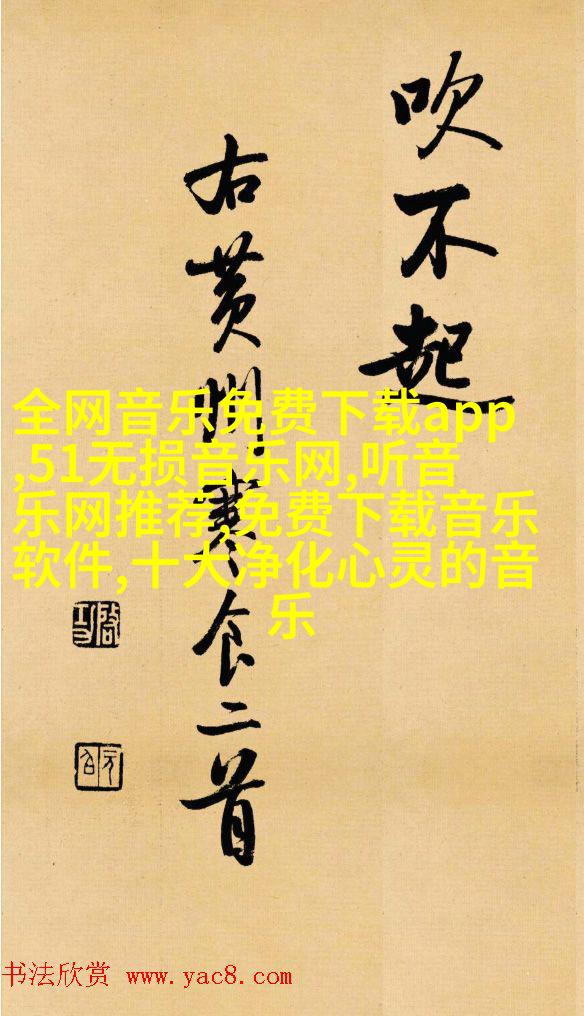 吹不起
右黄州寒食二首
全网音乐免费下载app
,51无损音乐网,听音
乐网推荐,免费下载音乐
软件,十大净化心灵的音
乐
启功
元白
书法欣赏 www.yac8.com